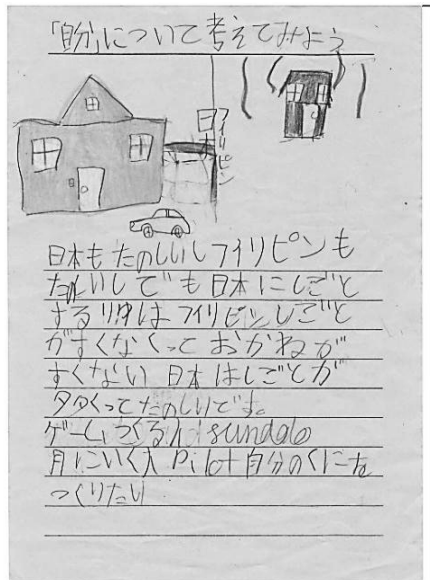 「自分」について考えてみよう
日本
フィリピン
日本もたのしいしフィリピンも
たのしいしでも日本にしごと
する理由はフィリピンしごと
がすくなくっておかねが
すくない日本はしごとが
多くってたのしいです。
ゲームつくる人 sundalo
月にいく人 Pilot 自分のくにを
つくりたい